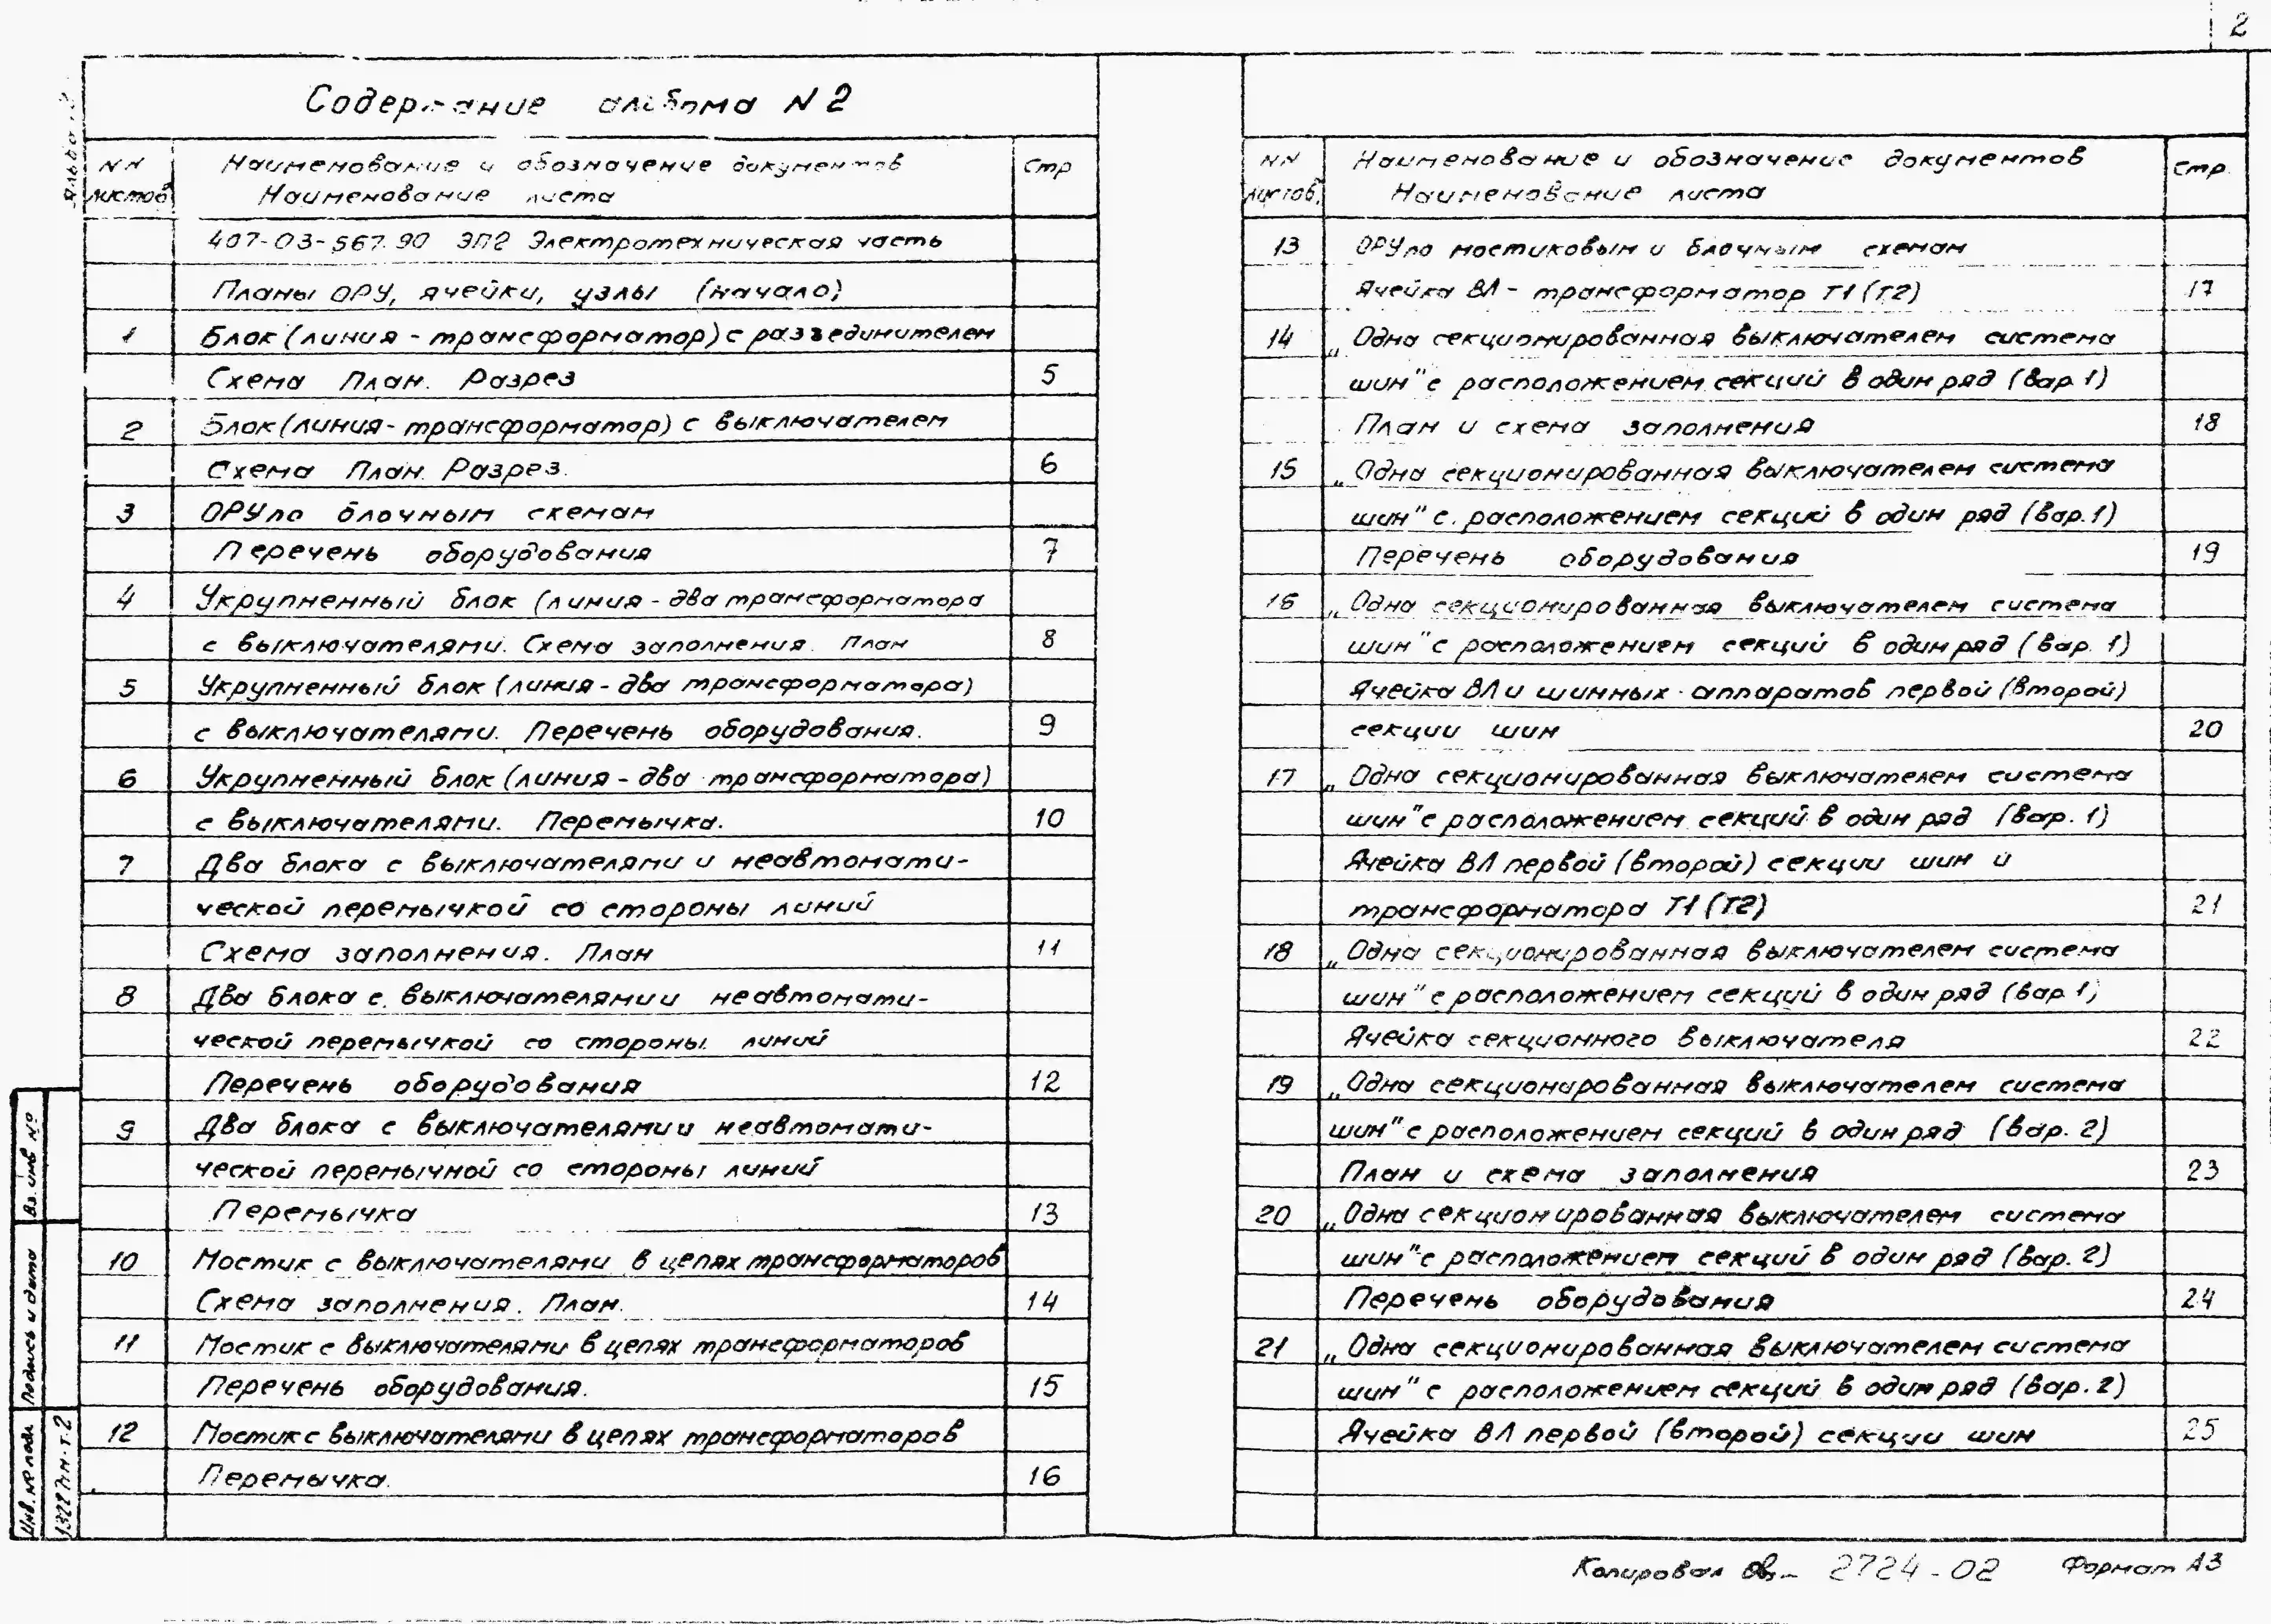 2
Содержание альбома N 2
Альбом 2
NN листов
Наименование и обозначение документов
Наименование листа
Стр
407-03-567.90 ЭП2 Электротехническая часть
Планы ОРУ, ячейки, узлы (начало)
1 Блок (линия - трансформатор) с разъединителем
Схема План. Разрез 5
2 Блок (линия - трансформатор) с выключателем
Схема План. Разрез. 6
3 ОРУ по блочным схемам
Перечень оборудования 7
4 Укрупненный блок (линия - два трансформатора
с выключателями. Схема заполнения. План 8
5 Укрупненный блок (линия - два трансформатора)
с выключателями. Перечень оборудования. 9
6 Укрупненный блок (линия - два трансформатора)
с выключателями. Перемычка. 10
7 Два блока с выключателями и неавтомати-
ческой перемычкой со стороны линий
Схема заполнения. План 11
8 Два блока с выключателями и неавтомати-
ческой перемычкой со стороны линий
Перечень оборудования 12
9 Два блока с выключателями и неавтомати-
ческой перемычной со стороны линий
Перемычка 13
10 Мостик с выключателями в цепях трансформаторов
Схема заполнения. План. 14
11 Мостик с выключателями в цепях трансформаторов
Перечень оборудования. 15
12 Мостик с выключателями в цепях трансформаторов
Перемычка. 16
NN листов
Наименование и обозначение документов
Наименование листа
Стр.
13 ОРУ по мостиковым и блочным схемам
Ячейка ВЛ - трансформатор Т1 (Т2) 17
14 „Одна секционированная выключателем система
шин" с расположением секций в один ряд (вар. 1)
План и схема заполнения 18
15 „Одна секционированная выключателем система
шин" с расположением секций в один ряд (вар. 1)
Перечень оборудования 19
16 „Одна секционированная выключателем система
шин" с расположением секций в один ряд (вар. 1)
Ячейка ВЛ и шинных аппаратов первой (второй)
секции шин 20
17 „Одна секционированная выключателем система
шин" с расположением секций в один ряд (вар. 1)
Ячейка ВЛ первой (второй) секции шин и
трансформатора Т1 (Т2) 21
18 „Одна секционированная выключателем система
шин" с расположением секций в один ряд (вар. 1)
Ячейка секционного выключателя 22
19 „Одна секционированная выключателем система
шин" с расположением секций в один ряд (вар. 2)
План и схема заполнения 23
20 „Одна секционированная выключателем система
шин" с расположением секций в один ряд (вар. 2)
Перечень оборудования 24
21 „Одна секционированная выключателем система
шин" с расположением секций в один ряд (вар. 2)
Ячейка ВЛ первой (второй) секции шин 25
Вз. инв №
Подпись и дата
Инв. № подл.
13227тм-т.2
Копировал 2724-02 Формат А3